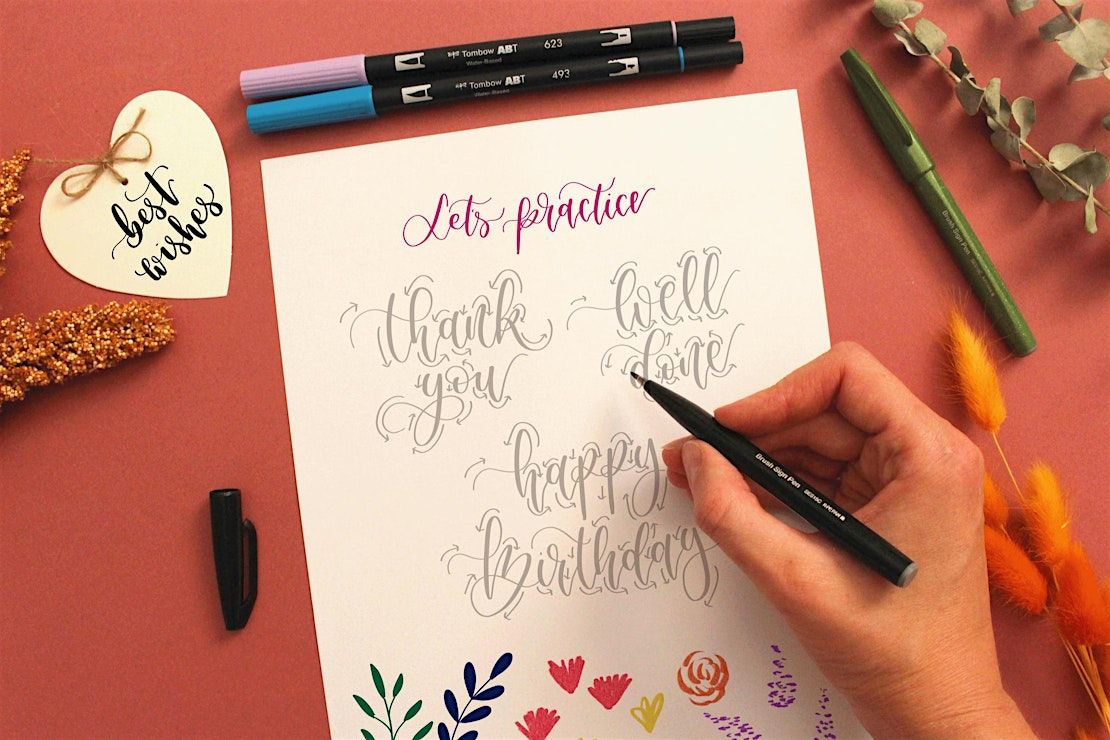 Tombow ABT 623
Water-Based
Tombow ABT 493
Water-Based
best
wishes
Let's practice
thank
you
well
done
happy
Birthday
Brush Sign Pen
Brush Sign Pen